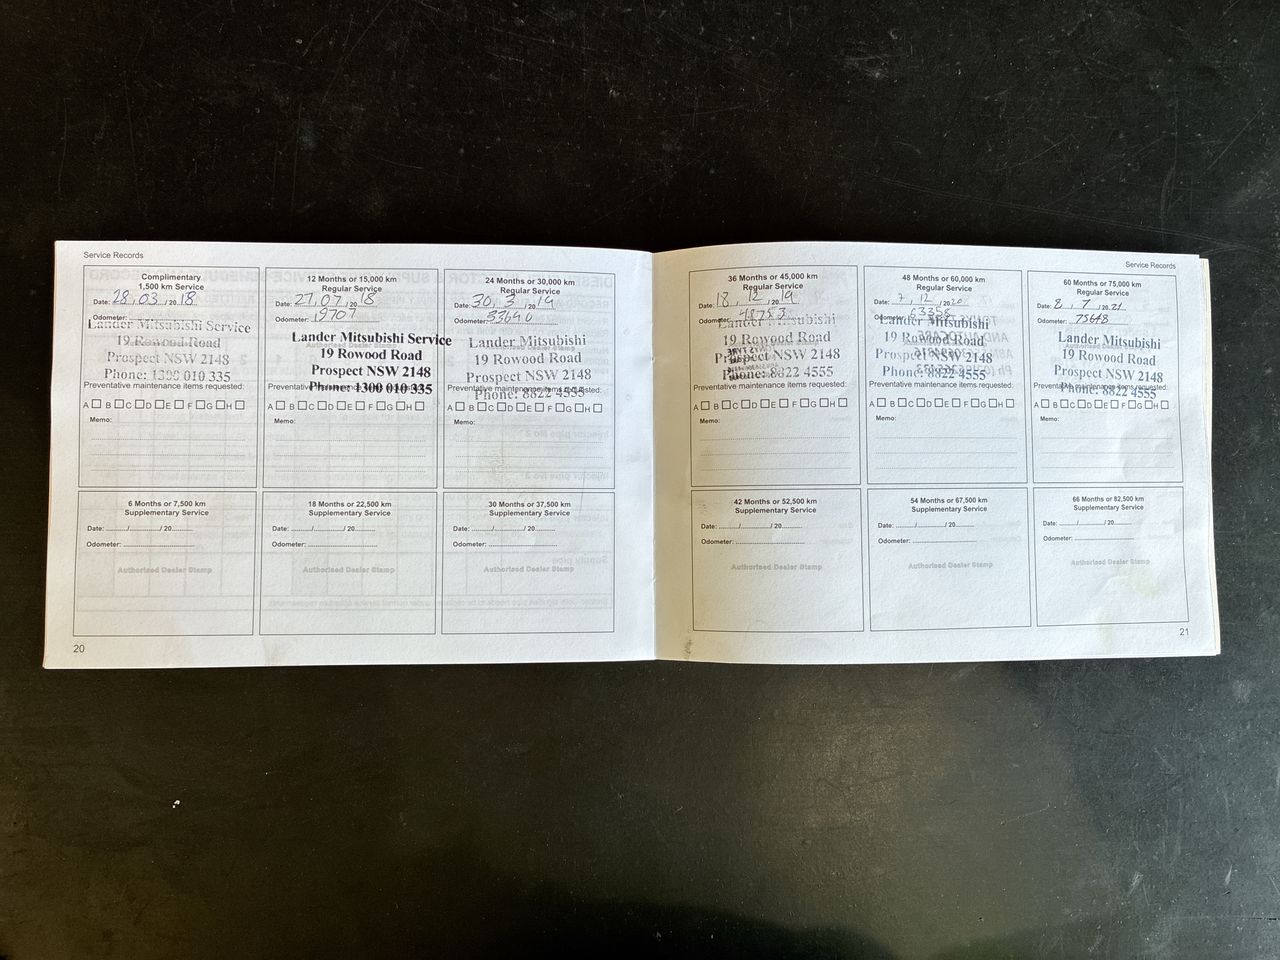 Service Records
Complimentary
1,500 km Service
Date: 28, 03, 20 18
Odometer:
Lander Mitsubishi Service
19 Rowood Road
Prospect NSW 2148
Phone: 1300 010 335
Preventative maintenance items requested:
A B C D E F G H
Memo:
12 Months or 15,000 km
Regular Service
Date: 27, 07, 20 18
Odometer: 19707
Lander Mitsubishi Service
19 Rowood Road
Prospect NSW 2148
Phone: 1300 010 335
A B C D E F G H
Memo:
24 Months or 30,000 km
Regular Service
Date: 30, 3, 20 19
Odometer: 33690
Lander Mitsubishi
19 Rowood Road
Prospect NSW 2148
Phone: 8822 4555
Preventative maintenance items requested:
A B C D E F G H
Memo:
6 Months or 7,500 km
Supplementary Service
Date: / / 20
Odometer:
Authorised Dealer Stamp
18 Months or 22,500 km
Supplementary Service
Date: / / 20
Odometer:
Authorised Dealer Stamp
30 Months or 37,500 km
Supplementary Service
Date: / / 20
Odometer:
Authorised Dealer Stamp
20
Service Records
36 Months or 45,000 km
Regular Service
Date: 18, 12, 20 19
Odometer: 48753
Lander Mitsubishi
19 Rowood Road
Prospect NSW 2148
Phone: 8822 4555
Preventative maintenance items requested:
A B C D E F G H
Memo:
48 Months or 60,000 km
Regular Service
Date: 7, 12, 20 20
Odometer: 63358
Lander Mitsubishi
19 Rowood Road
Prospect NSW 2148
Phone: 8822 4555
Preventative maintenance items requested:
A B C D E F G H
Memo:
60 Months or 75,000 km
Regular Service
Date: 8, 7, 20 21
Odometer: 75648
Lander Mitsubishi
19 Rowood Road
Prospect NSW 2148
Phone: 8822 4555
Preventative maintenance items requested:
A B C D E F G H
Memo:
42 Months or 52,500 km
Supplementary Service
Date: / / 20
Odometer:
Authorised Dealer Stamp
54 Months or 67,500 km
Supplementary Service
Date: / / 20
Odometer:
Authorised Dealer Stamp
66 Months or 82,500 km
Supplementary Service
Date: / / 20
Odometer:
Authorised Dealer Stamp
21